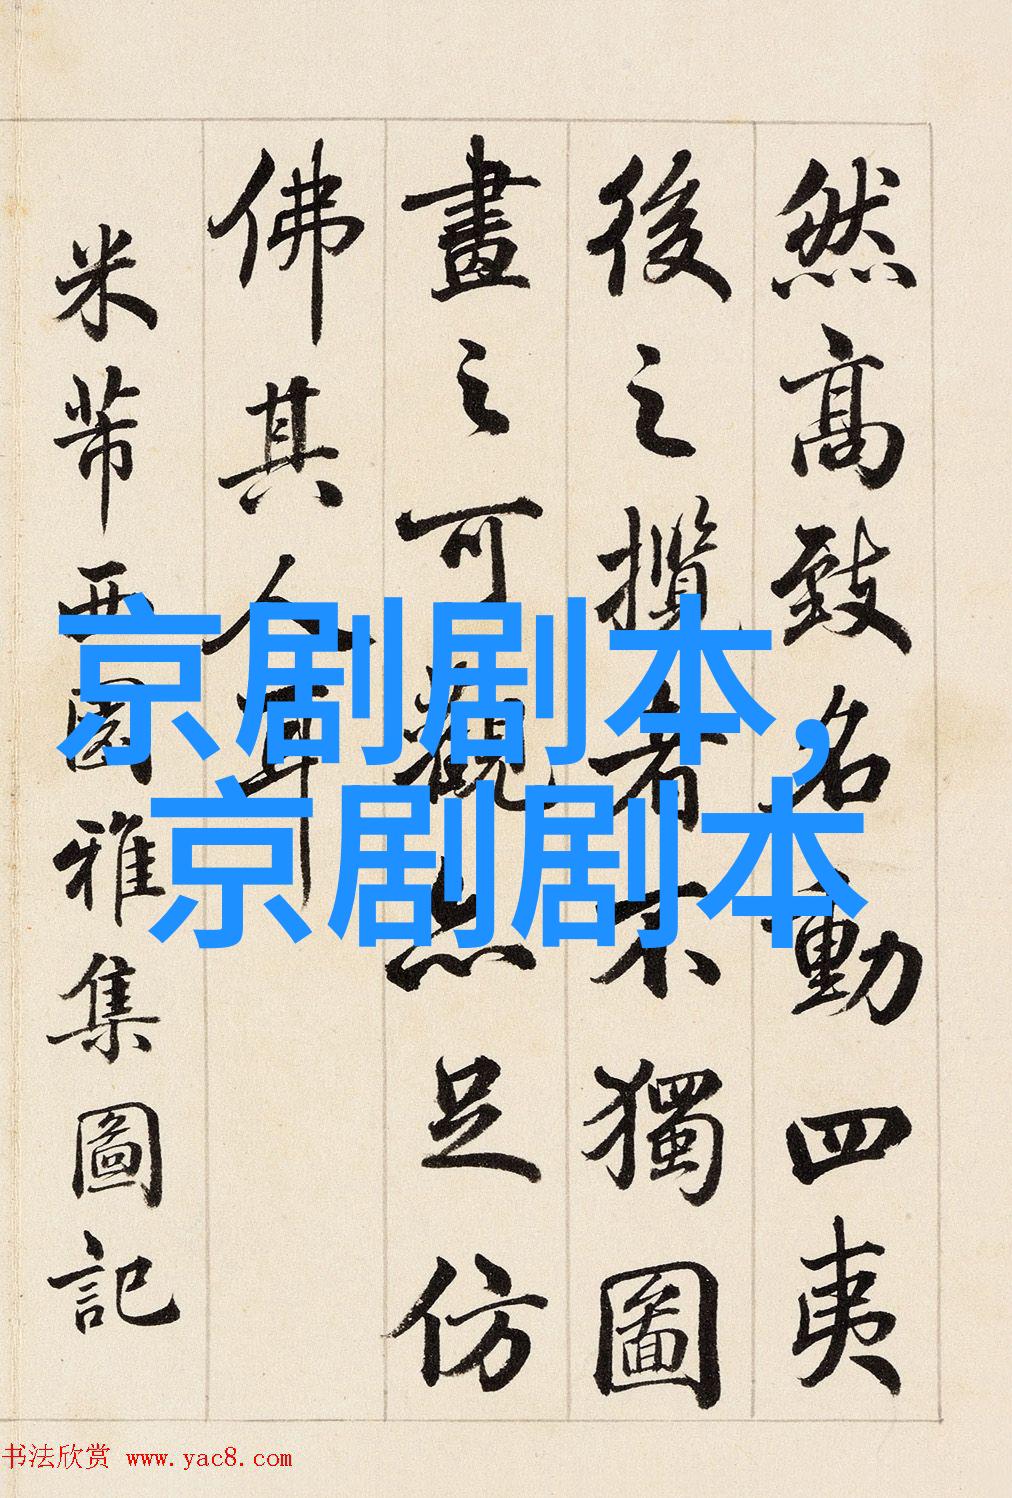 然高致名動四夷
後之攬者不獨圖
畫之可觀亦足仿
佛其人耳
米芾西園雅集圖記
京剧剧本,
京剧剧本
书法欣赏 www.yac8.com